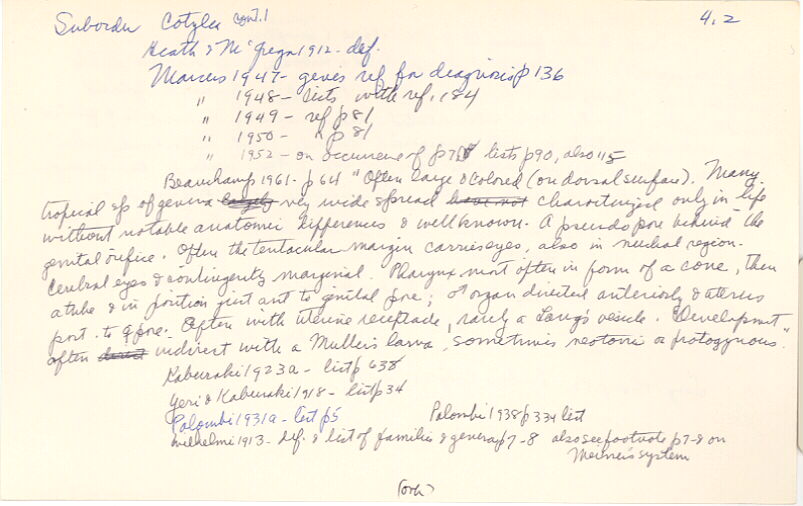 Suborder Cotylea cont. 1 4.2
Heath & McGregor 1912 - def.
Marcus 1947 - gives ref for diagnosis p 136
" 1948 - lists with ref, 184
" 1949 - ref p 81
" 1950 - " p 81
" 1952 - on occurrence of p lists p 90, also 115
Beauchamp 1961 - p 64 "Often large & colored (on dorsal surface). Many
tropical sp of genera largely very wide spread have not charcitinized only in life
without notable anatomic differences & well known. A pseudo pore behind the
genital orifice. Often the tentacular margin carries eyes, also in nuchal region.
Cerebral eyes & contingently marginal. Pharynx most often in form of a cone, then
a tube & in position just ant to genital pore; ♂ organ directed anteriorly & uterus
post. to ♀ pore. Often with uterine receptacle, rarely a Lang's vesicle. Development
often direct indirect with a Müller's larva, sometimes neotonic or protogynous."
Kaburaki 1923a - list p 638
Yeri & Kaburaki 1918 - list p 34
Palombi 1931a - list p 5 Palombi 1938 p 334 list
Wilhelmi 1913 - def. & list of families & genera p 7-8 also see footnote p 7-8 on
Meixner's system
(over)